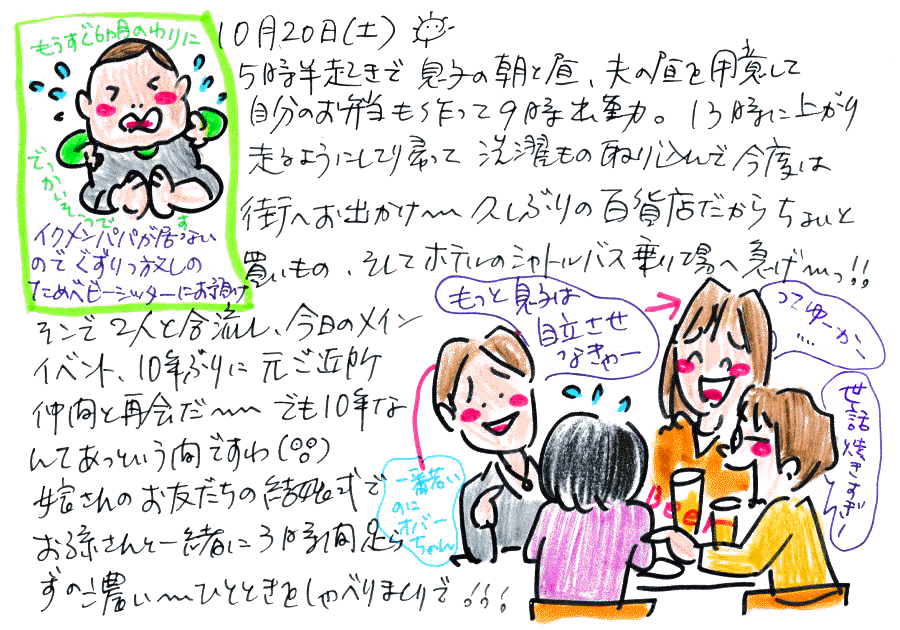 10月20日(土)
5時半起きで 息子の朝と昼、夫の昼を用意して
自分のお弁当も作って9時出勤。13時に上がり
走るようにして帰って 洗濯もの取り込んで 今度は
街へお出かけ〜 久しぶりの百貨店だからちょいと
買いもの、そしてホテルのシャトルバス乗り場へ急げ〜っ!!
もうすぐ6カ月のわりに
でっかいそーです
イクメンパパが居ない
のでぐずりっ放しの
ためベビーシッターにお預け
そこで2人と合流し、今日のメイン
イベント、10年ぶりに元ご近所
仲間と再会だ〜 でも10年な
んてあっという間ですわ
お嫁さんと一緒に3時間足ら
ずの濃い〜ひとときをしゃべりまくりで!!!
もっと息子は
自立させ
なきゃー
ってゆーか、
....
世話
焼きすぎー
一番若い
のに
オバー
ちゃん
Beer